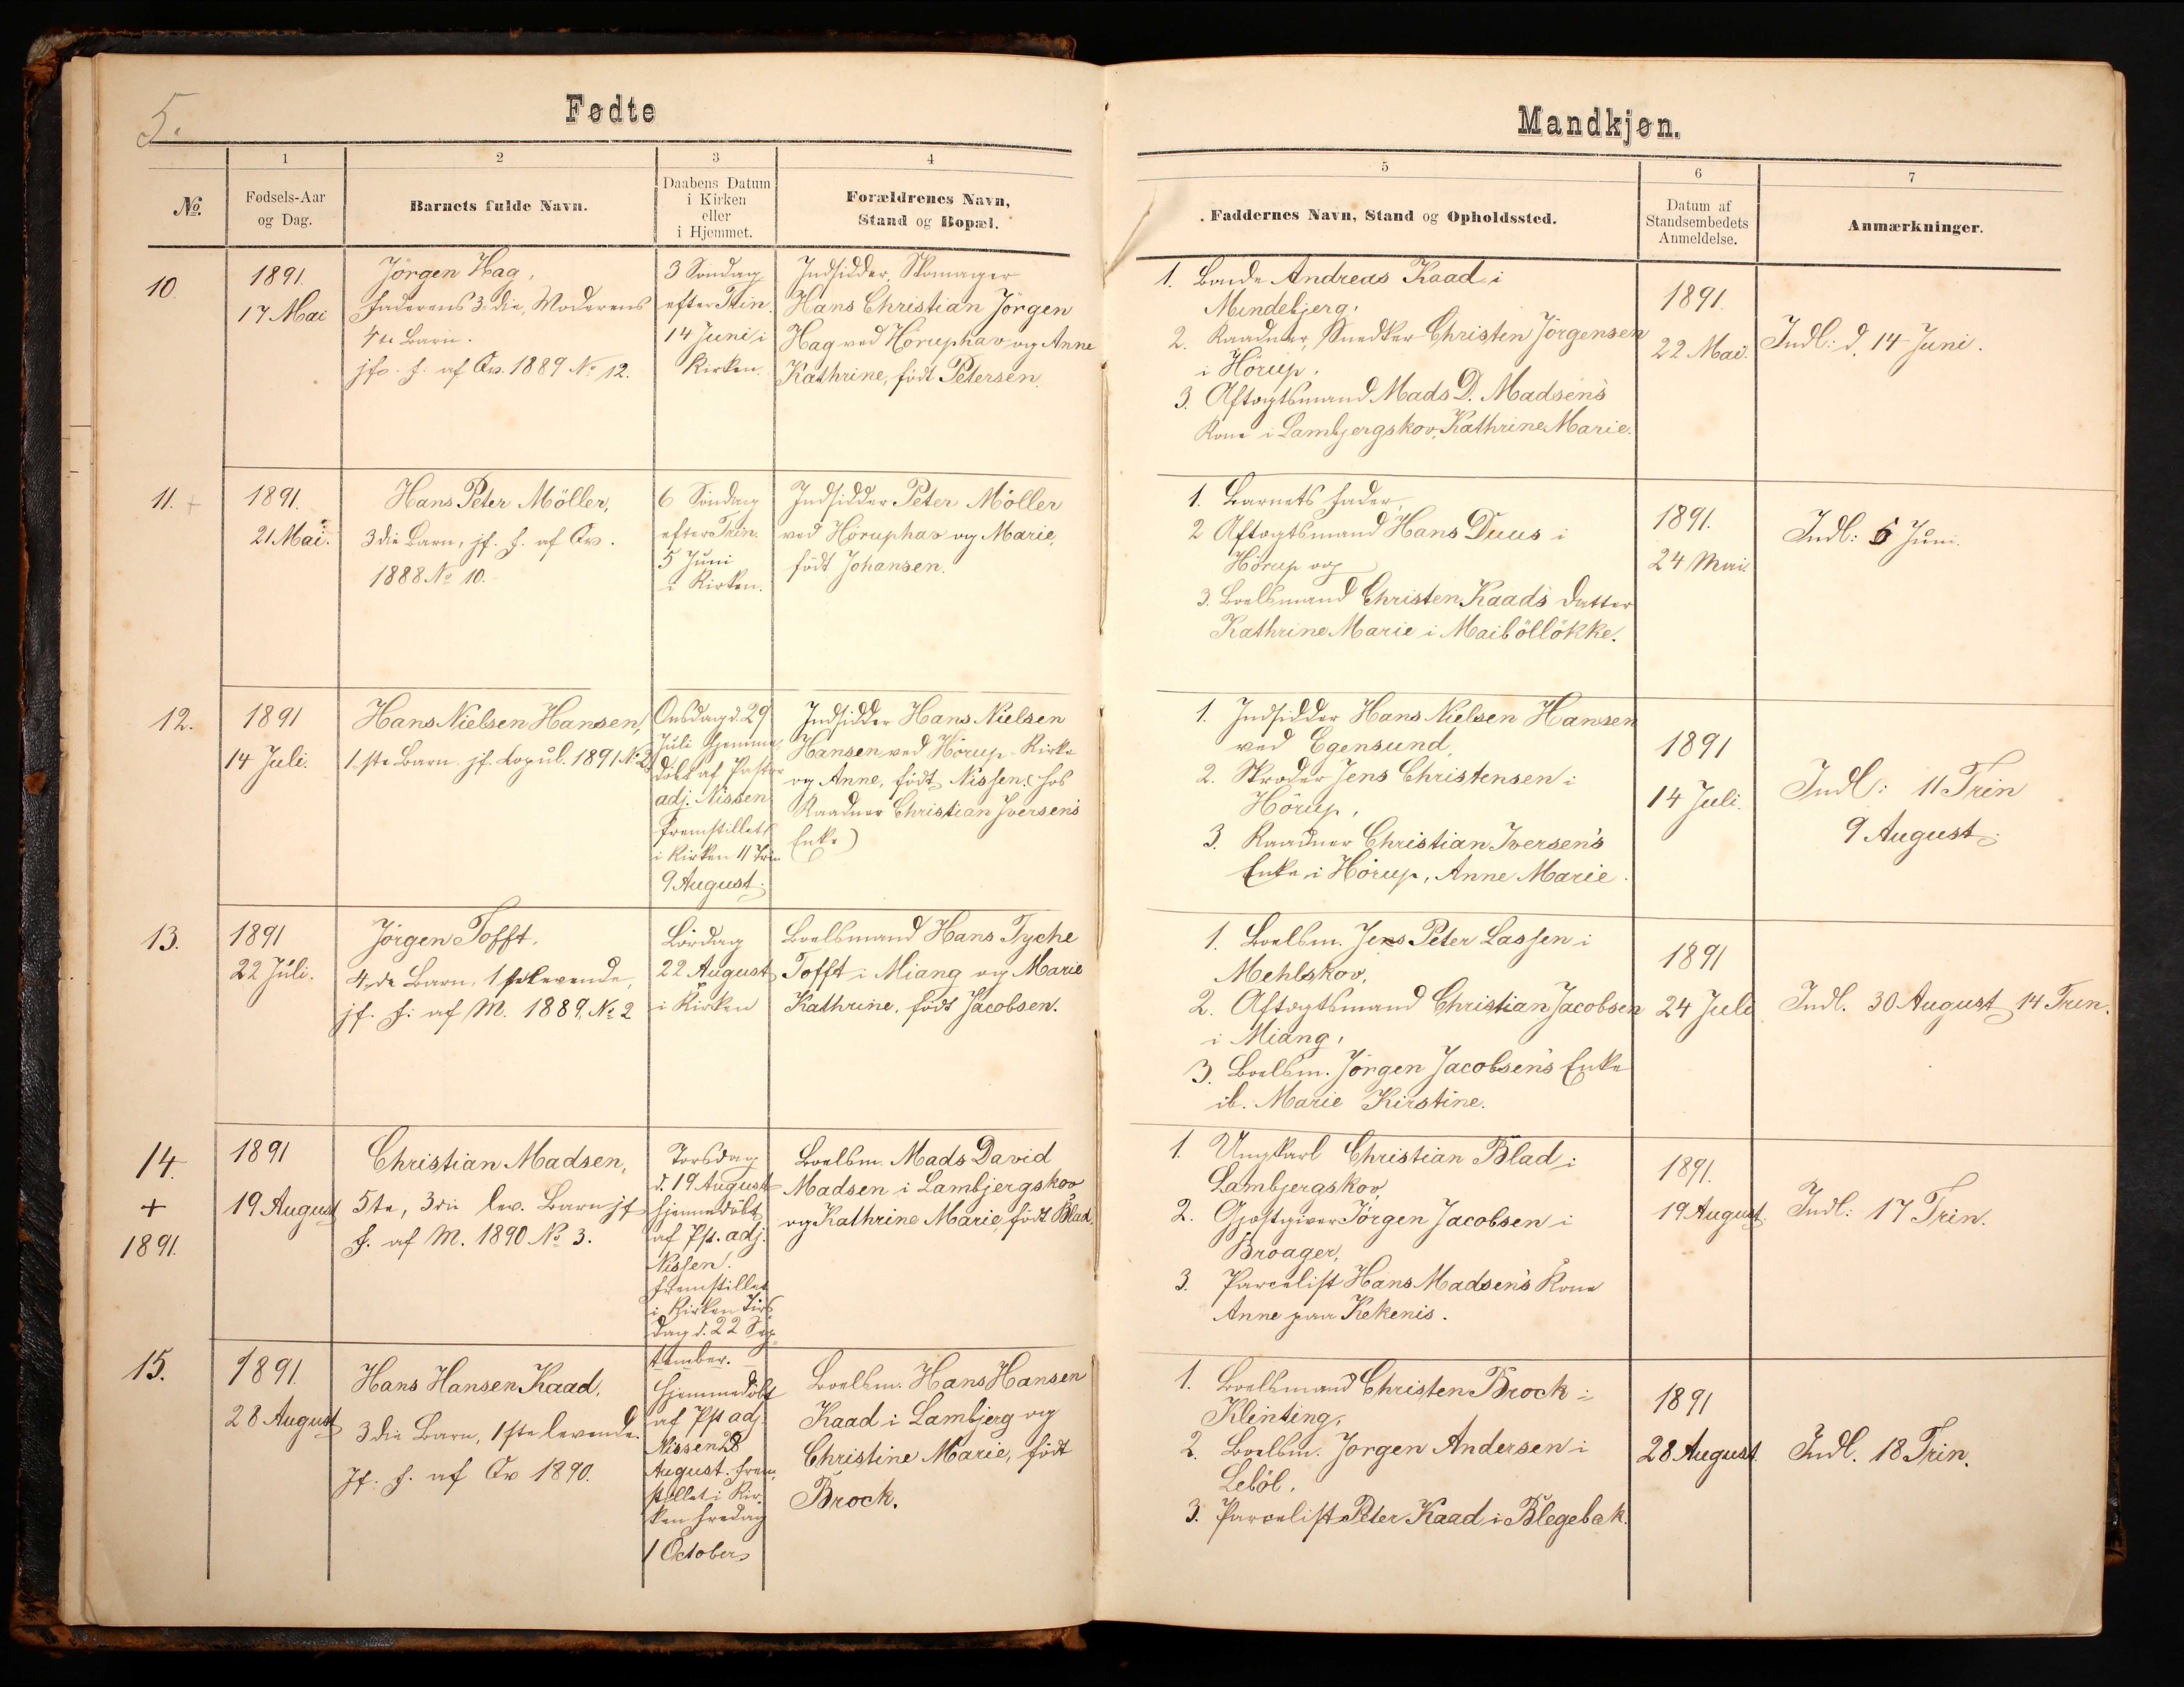 5.
Fødte
Mandkjøn.
No.
1
Fødsels-Aar
og Dag.
2
Barnets fulde Navn.
3
Daabens Datum
i Kirken
eller
i Hjemmet.
4
Forældrenes Navn,
Stand og Bopæl.
5
Faddernes Navn, Stand og Opholdssted.
6
Datum af
Standsembedets
Anmeldelse.
7
Anmærkninger.
10.
1891.
17 Mai
Jörgen Hag,
Faderens 3die, Moderens
4de Barn.
jfr. F. af Qv. 1889 No 12.
3 Søndag
efter Trin.
14 Juni i
Kirken.
Indsidder, Skomager
Hans Christian Jörgen
Hag ved Höruphav og Anne
Kathrine, födt Petersen.
1. Bonde Andreas Kaad i
Mindebjerg,
2. Kaadner, Snedker Christen Jörgensen
i Hörup,
3. Aftægtsmand Mads D. Madsen's
Kone i Lambjergskov, Kathrine Marie.
1891.
22 Mai.
Indl: d. 14 Juni.
11. +
1891.
21 Mai.
Hans Peter Möller,
3die Barn, jf. F. af Qv.
1888 No 10.
6 Søndag
efter Trin.
5 Juni
i Kirken.
Indsidder Peter Möller
ved Höruphav og Marie,
födt Johansen.
1. Barnets Fader,
2 Aftægtsmand Hans Duus i
Hörup og
3. Boelsmand Christen Kaad's Datter
Kathrine Marie i Maiböllökke.
1891.
24 Mai.
Indl: 5 Juni.
12.
1891
14 Juli.
Hans Nielsen Hansen,
1ste Barn jf. Copul. 1891 No 2.
Onsdag d. 29
Juli hjemme-
döbt af Pastor
adj. Nissen
fremstillet
i Kirken 11 Trin
9 August.
Indsidder Hans Nielsen
Hansen ved Hörup-Kirke
og Anne, födt Nissen. (hos
Kaadner Christian Iversen's
Enke)
1. Indsidder Hans Nielsen Hansen
ved Egensund,
2. Skræder Jens Christensen i
Hörup,
3. Kaadner Christian Iversen's
Enke i Hörup, Anne Marie.
1891
14 Juli.
Indl: 11 Trin
9 August.
13.
1891
22 Juli.
Jörgen Tofft.
4de Barn, 1ste levende,
jf. F. af M. 1889. No 2
Lördag
22 August
i Kirken
Boelsmand Hans Tyche
Tofft i Miang og Marie
Kathrine, födt Jacobsen.
1. Boelsm. Jens Peter Lassen i
Mehlskov,
2. Aftægtsmand Christian Jacobsen
i Miang,
3. Boelsm. Jörgen Jacobsen's Enke
ib. Marie Kirstine.
1891
24 Juli
Indl. 30 August 14 Trin.
14.
+
1891.
1891
19 August
Christian Madsen,
5te, 3die lev. Barn jf
F. af M. 1890 No 3.
Torsdag
d. 19 August
hjemmedöbt
af Pst. adj.
Nissen.
fremstillet
i Kirken Tirs-
dag d. 22 Sep-
tember.
Boelsm. Mads David
Madsen i Lambjergskov
og Kathrine Marie, födt Blad.
1. Ungkarl Christian Blad i
Lambjergskov,
2. Gjæstgiver Jörgen Jacobsen i
Broager,
3. Parcelist Hans Madsen's Kone
Anne paa Kekenis.
1891.
19 August.
Indl: 17 Trin.
15.
1891.
28 August
Hans Hansen Kaad,
3die Barn, 1ste levende.
Jf. F. af Qv 1890.
Hjemmedöbt
af Pst adj.
Nissen 28
August. frem-
stillet i Kir-
ken Fredag
1 October
Boelsm. Hans Hansen
Kaad i Lambjerg og
Christine Marie, födt
Brock.
1. Boelsmand Christen Brock i
Klinting,
2. Boelsm. Jorgen Andersen i
Leböl,
3. Parcelist Peter Kaad i Blegebæk.
1891
28 August.
Indl. 18 Trin.